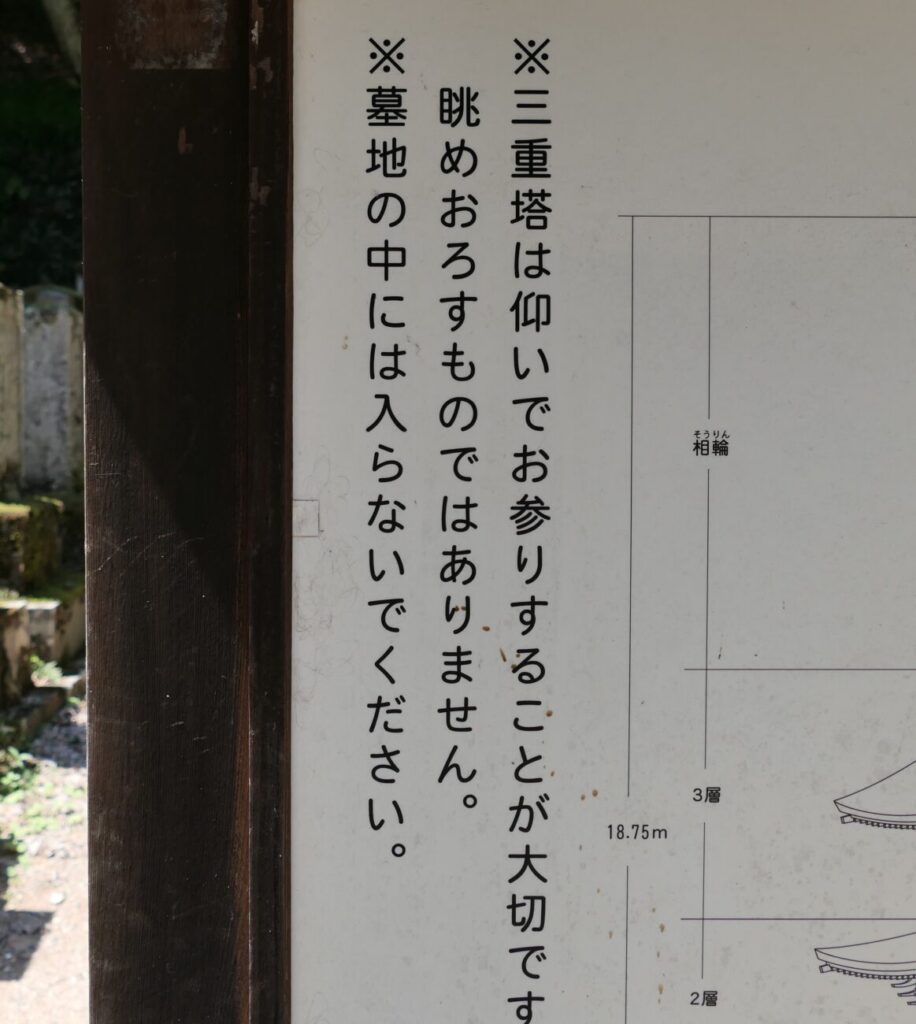 ※三重塔は仰いでお参りすることが大切です
眺めおろすものではありません。
※墓地の中には入らないでください。
そうりん
相輪
3層
18.75m
2層